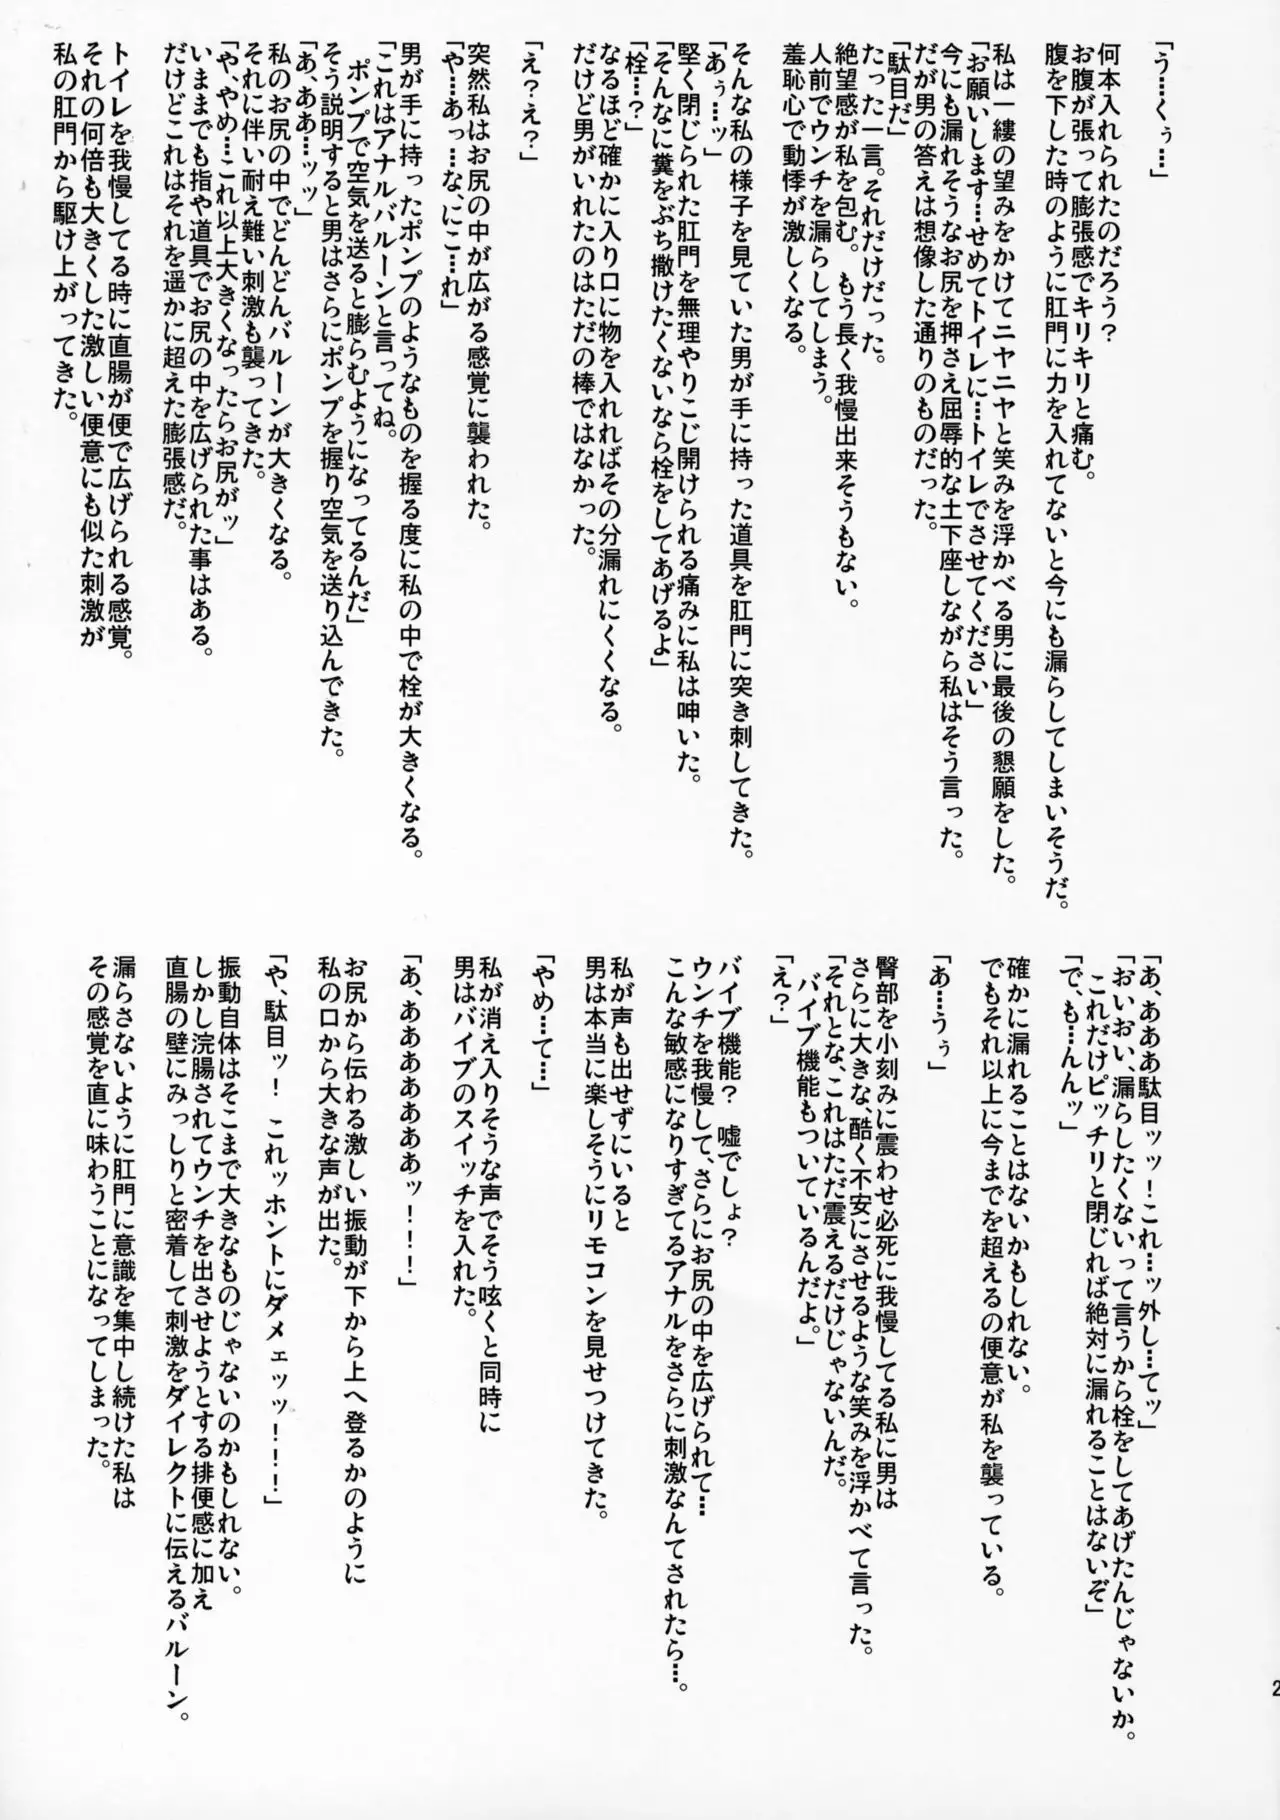 「う…くぅ…」
何本入れられたのだろう？
お腹が張って膨張感でキリキリと痛む。
腹を下した時のように肛門に力を入れてないと今にも漏らしてしまいそうだ。
私は一縷の望みをかけてニヤニヤと笑みを浮かべる男に最後の懇願をした。
「お願いします…せめてトイレに…トイレでさせてください」
今にも漏れそうなお尻を押さえ屈辱的な土下座しながら私はそう言った。
だが男の答えは想像した通りのものだった。
「駄目だ」
たった一言。それだけだった。
絶望感が私を包む。もう長く我慢出来そうもない。
人前でウンチを漏らしてしまう。
羞恥心で動悸が激しくなる。
そんな私の様子を見ていた男が手に持った道具を肛門に突き刺してきた。
「あぅ…ッ」
堅く閉じられた肛門を無理やりこじ開けられる痛みに私は呻いた。
「そんなに糞をぶち撒けたくないなら栓をしてあげるよ」
「栓…？」
なるほど確かに入り口に物を入れればその分漏れにくくなる。
だけど男がいれたのはただの棒ではなかった。
「え？え？」
突然私はお尻の中が広がる感覚に襲われた。
「や…あっ…な、にこ…れ」
男が手に持ったポンプのようなものを握る度に私の中で栓が大きくなる。
「これはアナルバルーンと言ってね。
ポンプで空気を送ると膨らむようになってるんだ」
そう説明すると男はさらにポンプを握り空気を送り込んできた。
「あ、ああ…ッッ」
私のお尻の中でどんどんバルーンが大きくなる。
それに伴い耐え難い刺激も襲ってきた。
「や、やめ…これ以上大きくなったらお尻がッ」
いままでも指や道具でお尻の中を広げられた事はある。
だけどこれはそれを遥かに超えた膨張感だ。
トイレを我慢してる時に直腸が便で広げられる感覚。
それの何倍も大きくした激しい便意にも似た刺激が
私の肛門から駆け上がってきた。
「あ、あああ駄目ッッ！これ…ッ外し…てッ」
「おいおい、漏らしたくないって言うから栓をしてあげたんじゃないか。
これだけピッチリと閉じれば絶対に漏れることはないぞ」
「で、も…んんッ」
確かに漏れることはないかもしれない。
でもそれ以上に今までを超えるの便意が私を襲っている。
「あ…うぅ」
臀部を小刻みに震わせ必死に我慢してる私に男は
さらに大きな、酷く不安にさせるような笑みを浮かべて言った。
「それとな、これはただ震えるだけじゃないんだ。
バイブ機能もついているんだよ。」
「え？」
バイブ機能？　嘘でしょ？
ウンチを我慢して、さらにお尻の中を広げられて…
こんな敏感になりすぎてるアナルをさらに刺激なんてされたら…。
私が声も出せずにいると
男は本当に楽しそうにリモコンを見せつけてきた。
「やめ…て…」
私が消え入りそうな声でそう呟くと同時に
男はバイブのスイッチを入れた。
「あ、ああああああぁッ！！！」
お尻から伝わる激しい振動が下から上へ登るかのように
私の口から大きな声が出た。
「や、駄目ッ！これッホントにダメェッッ！！！」
振動自体はそこまで大きなものじゃないのかもしれない。
しかし浣腸されてウンチを出させようとする排便感に加え
直腸の壁にみっしりと密着して刺激をダイレクトに伝えるバルーン。
漏らさないように肛門に意識を集中し続けた私は
その感覚を直に味わうことになってしまった。